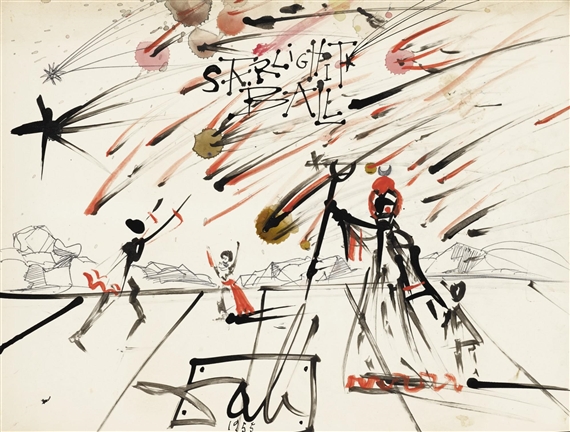 STARLIGHT
BALL
Dali
1955